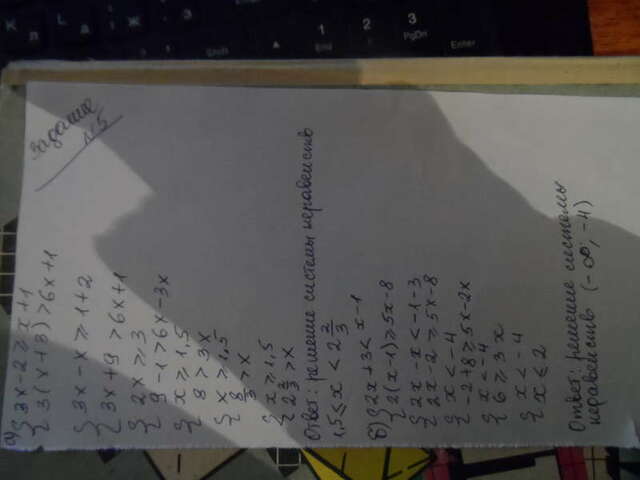 Задание
№5
а) { 3x-2 ≥ x+1
{ 3(x+3) > 6x+1
{ 3x-x ≥ 1+2
{ 3x+9 > 6x+1
{ 2x ≥ 3
{ 9-1 > 6x-3x
{ x ≥ 1,5
{ 8 > 3x
{ x ≥ 1,5
{ 8/3 > x
{ x ≥ 1,5
{ 2 2/3 > x
Ответ: решение системы неравенств
1,5 ≤ x < 2 2/3
б) { 2x+3 < x-1
{ 2(x-1) ≥ 5x-8
{ 2x-x < -1-3
{ 2x-2 ≥ 5x-8
{ x < -4
{ -2+8 ≥ 5x-2x
{ x < -4
{ 6 ≥ 3x
{ x < -4
{ x ≤ 2
Ответ: решение системы
неравенств (-∞; -4)
К
Д
Ж
Э
Shift
1
End
2
3
PgDn
Enter